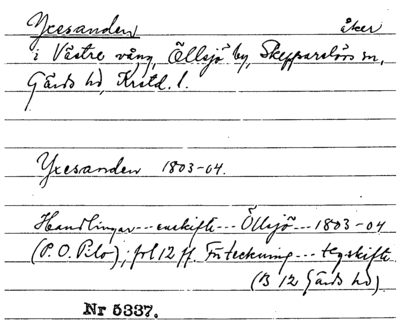 Yxesanden åker
i Västre vång, Öllsjö by, Skepparslövs sn,
Gärds hd, Kristd. l.
Yxesanden 1803-04.
Handlingar --- enskifte --- Öllsjö --- 1803-04
(P. O. Pilo); fol 12 ff. Förteckning --- tegskifte
(B 12 Gärds hd)
Nr 5337.